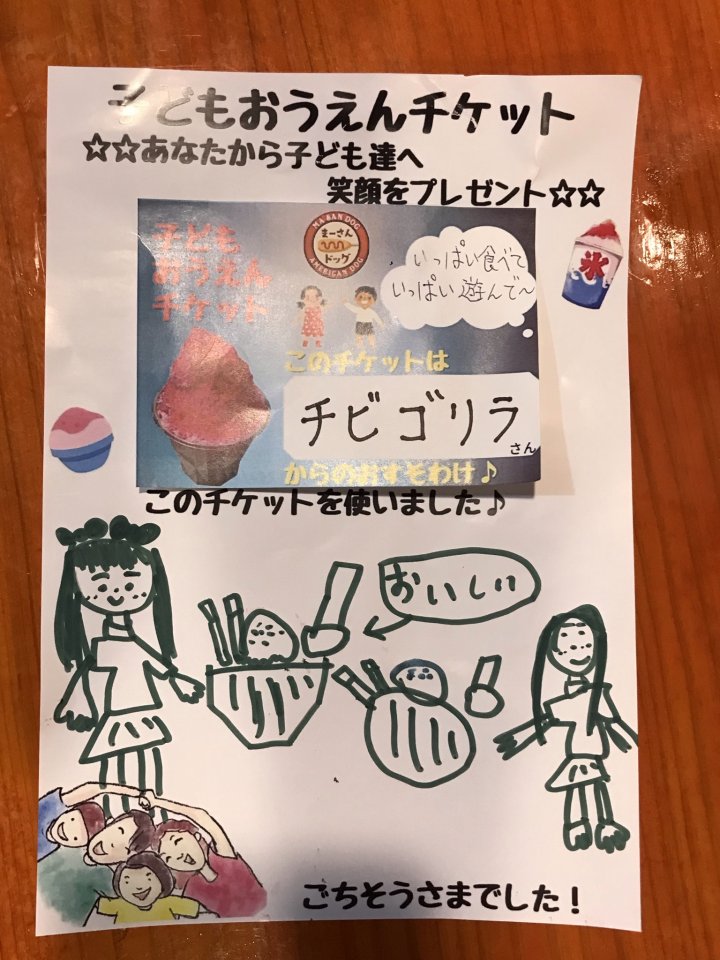 子どもおうえんチケット
☆☆あなたから子ども達へ
笑顔をプレゼント☆☆
子ども
おうえん
チケット
MA-SAN DOG
まーさん
ドッグ
AMERICAN DOG
いっぱい食べて
いっぱい遊んで～
氷
このチケットは
チビゴリラ
さん
からのおすそわけ♪
このチケットを使いました♪
おいしい
ごちそうさまでした！